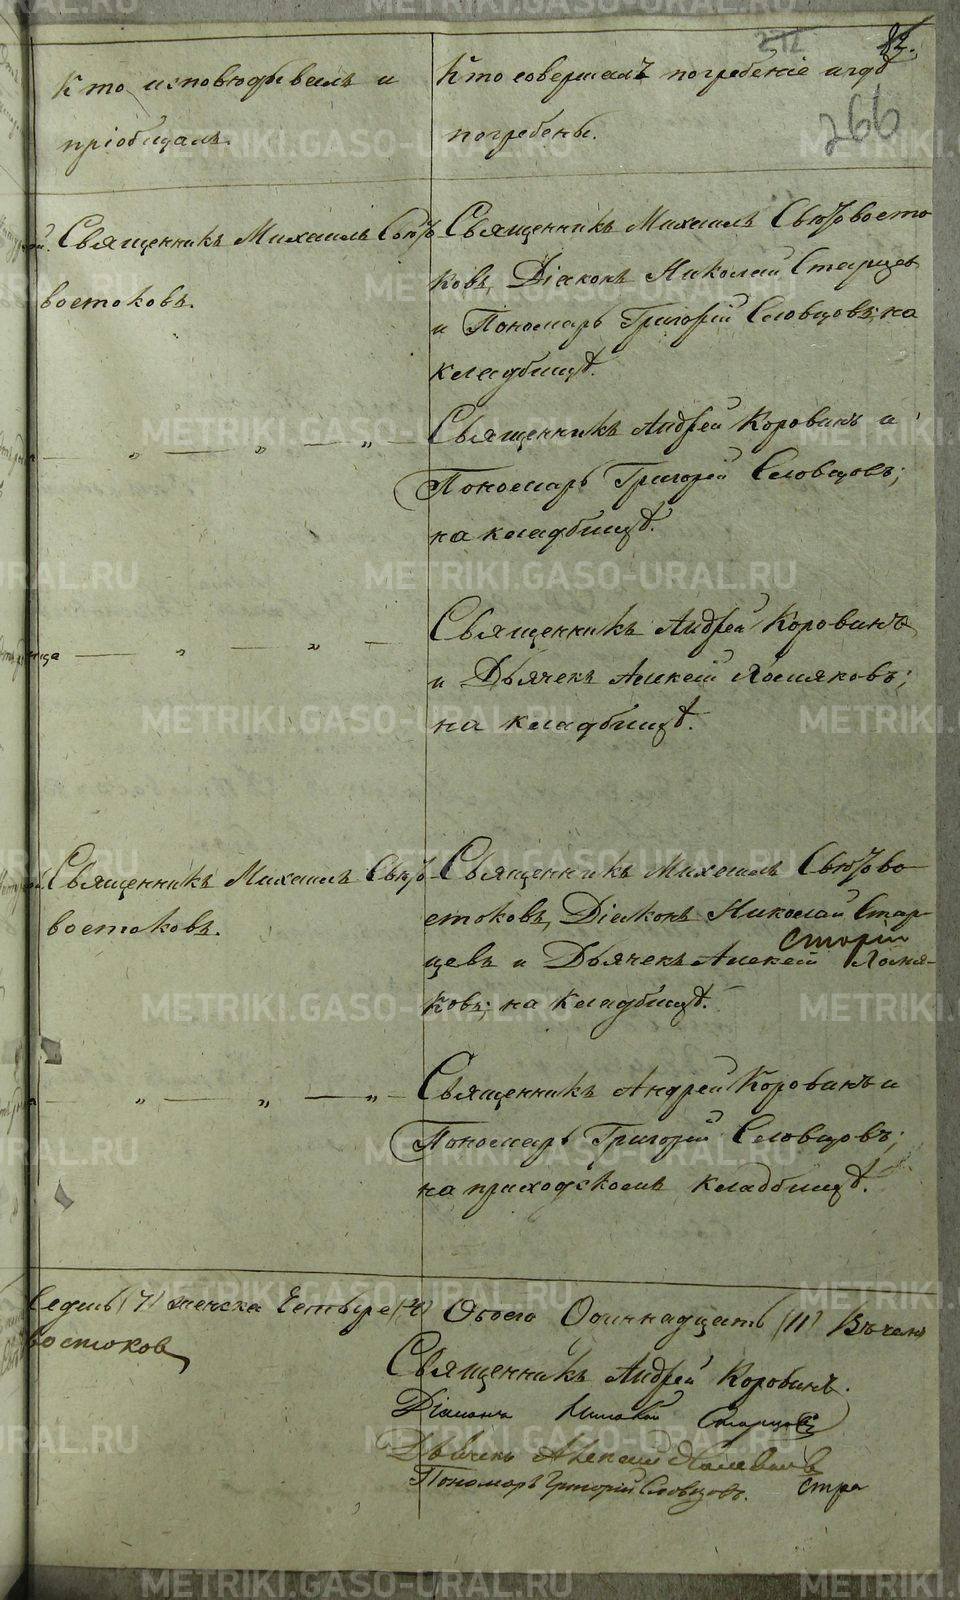 82.
212
266
Кто исповѣдывалъ и
пріобщалъ.
Кто совершалъ погребеніе и гдѣ
погребены.
Священникъ Михаилъ Свѣто
востоковъ.
Священникъ Михаилъ Свѣтовосто
ковъ, Діаконъ Николай Старцевъ
и Пономарь Григорій Словцовъ; на
кладбищѣ.
— „ — „ — „ —
Священникъ Андрей Коровинъ и
Пономарь Григорей Словцовъ;
на кладбищѣ.
— „ — „ —
Священникъ Андрей Коровинъ
и Дьячекъ Алексій Хомяковъ;
на кладбищѣ.
Священникъ Михаилъ Свѣто
востоковъ.
Священникъ Михаилъ Свѣтово
стоковъ, Діаконъ Николай Стар-
цевъ и Дьячекъ Алексей Хомя-
ковъ; на кладбищѣ.
— „ — „ — „ —
Священникъ Андрей Коровинъ и
Пономарь Григорій Словцовъ;
на приходскомъ кладбищѣ.
Седмь (7) женска Четыре (4)
Обоего Одиннадцать (11) Въ чемъ
востоковъ
Священникъ Андрей Коровинъ.
Діаконъ Николай Старцевъ
Дьячекъ Алексей Хомяковъ
Пономарь Григорій Словцовъ.
METRIKI.GASO-URAL.RU